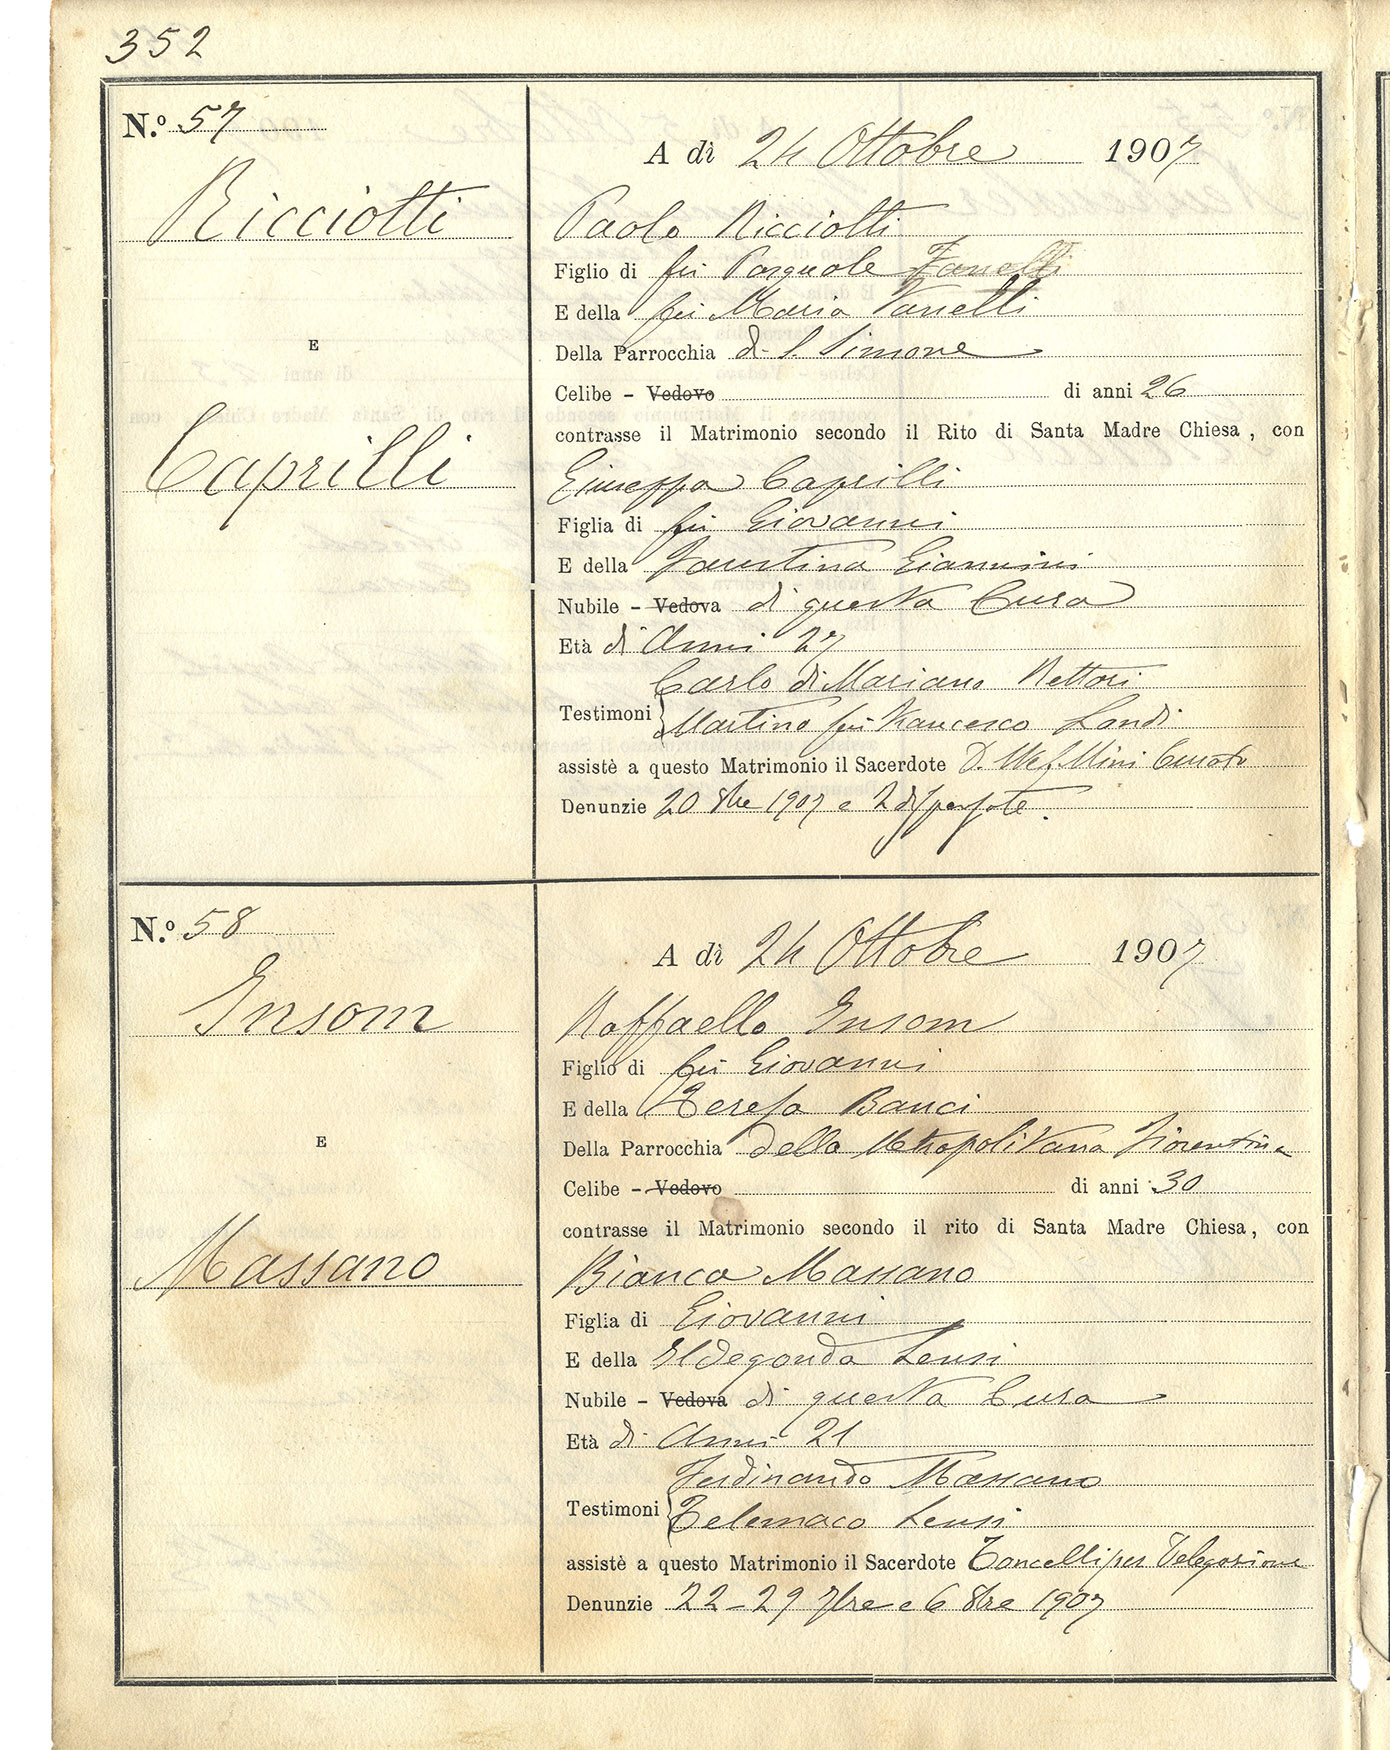 352
N.º 57
A dì 24 Ottobre 1907
Ricciotti
Paolo Ricciotti
Figlio di fu Pasquale Fanelli
E della fu Maria Vanelli
E
Della Parrocchia di S. Simone
Celibe - Vedovo di anni 26
contrasse il Matrimonio secondo il Rito di Santa Madre Chiesa, con
Caprilli
Giuseppa Caprilli
Figlia di fu Giovanni
E della Faustina Giannini
Nubile - Vedova di questa Cura
Età di Anni 27
Carlo di Mariano Rettori
Testimoni
Martino fu Francesco Landi
assistè a questo Matrimonio il Sacerdote D. Mini Curato
Denunzie 20 8bre 1907 e 2 dispensate.
N.º 58
A dì 24 Ottobre 1907
Insom
Raffaello Insom
Figlio di fu Giovanni
E della Teresa Banci
E
Della Parrocchia della Metropolitana Fiorentina
Celibe - Vedovo di anni 30
contrasse il Matrimonio secondo il rito di Santa Madre Chiesa, con
Massano
Bianca Massano
Figlia di Giovanni
E della Ildegonda Lensi
Nubile - Vedova di questa Cura
Età di Anni 21
Ferdinando Massano
Testimoni
Telemaco Lensi
assistè a questo Matrimonio il Sacerdote Toncelli per Delegazione
Denunzie 22-29 7bre e 6 8bre 1907